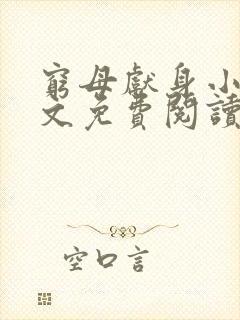 窮母獻身小
文免費閱讀
空口言